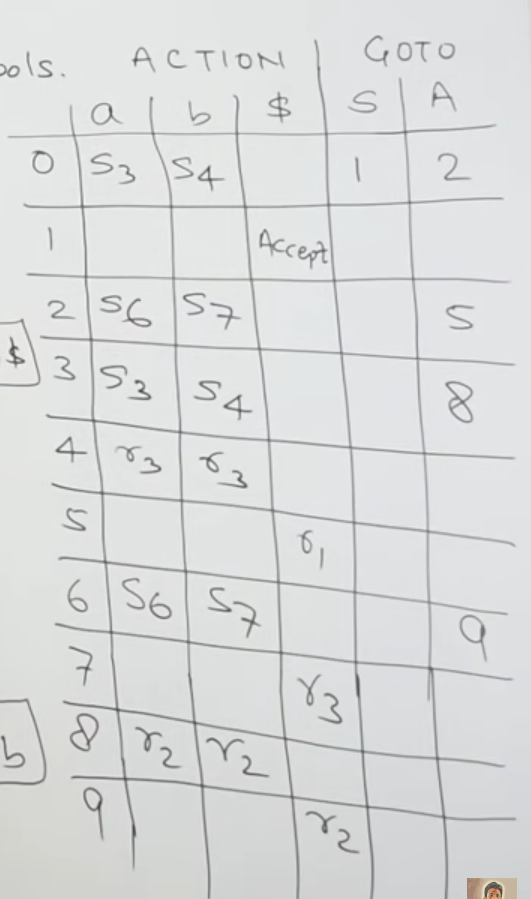 ools. ACTION GOTO
a b $ S A
0 S3 S4 1 2
1 Accept
2 S6 S7 5
$
3 S3 S4 8
4 r3 r3
5 r1
6 S6 S7 9
7 r3
b
8 r2 r2
9 r2